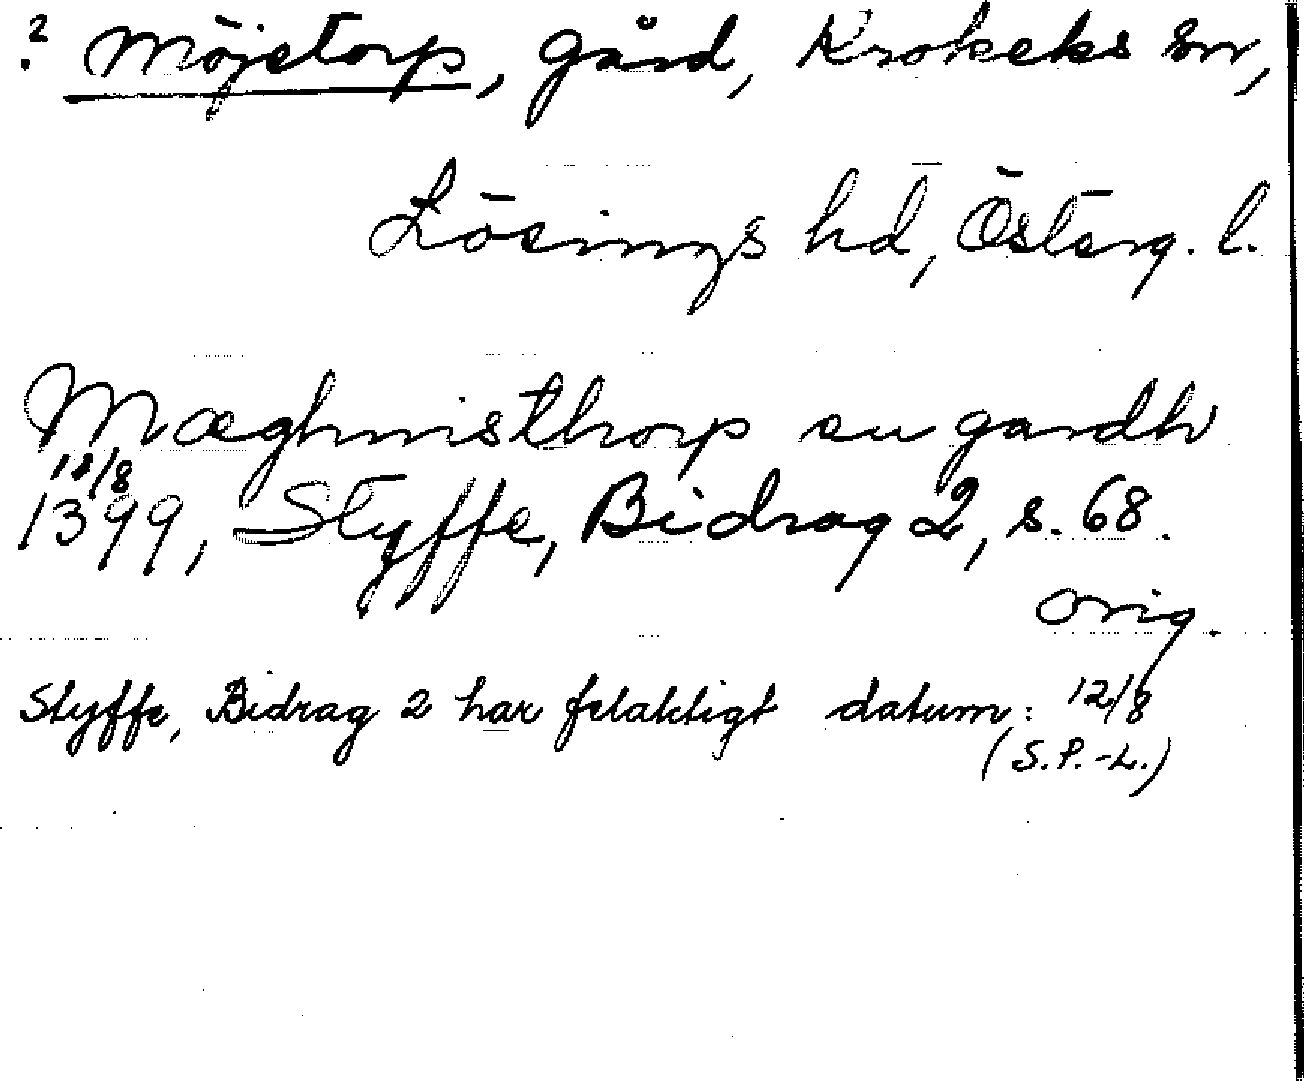 ? Möjetorp, gård, Krokeks sn,
Lösings hd, Österg. l.
Mæghinisthorp en gardh
11/8
1399, Styffe, Bidrag 2, s. 68.
orig.
Styffe, Bidrag 2 har felaktigt datum: 12/8
(S.P.-L.)